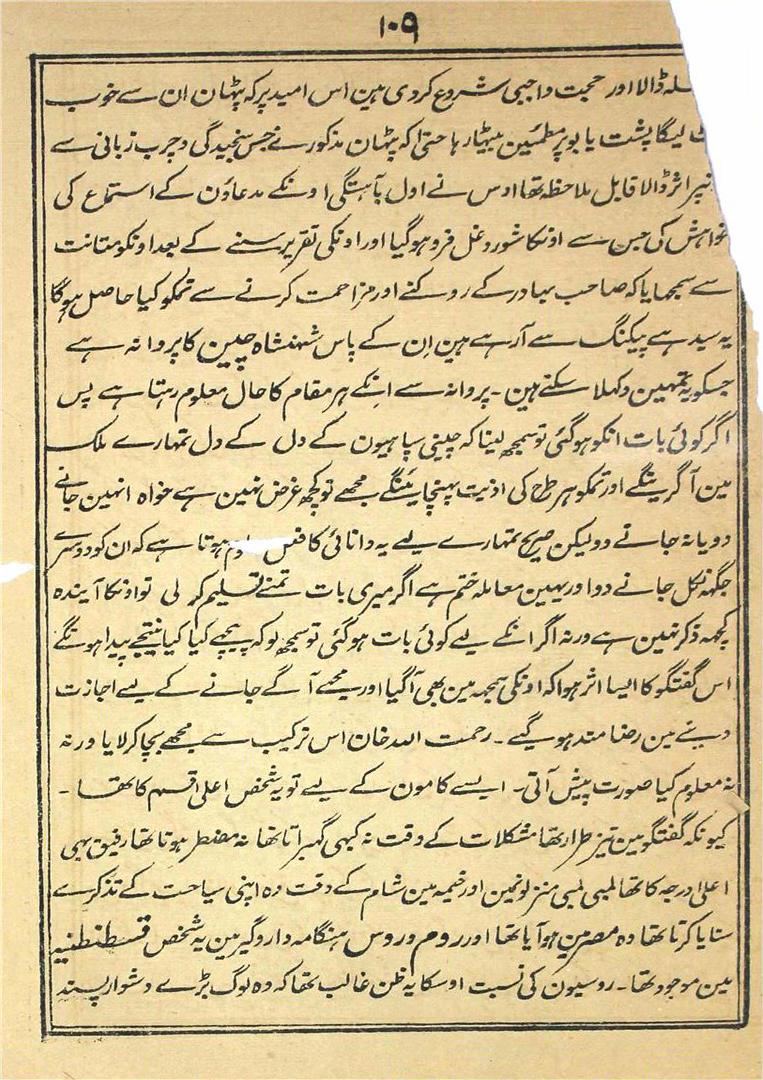 ۱۰۹
سلہ ڈالا اور حجت واجبی شروع کر دی ہین اس امید پر کہ پٹہان ان سے خوب
لیگا پشت یابو پر مطمئین بیٹہا رہا حتا کہ پٹہان مذکور نے جس سنجیدگی و چرب زبانی سے
نپر اثر ڈالا قابل ملاحظہ تھا اوس نے اول بآہستگی اونکے مدعاؤن کے استماع کی
خواہش کی جس سے اونکا شور و غل فرو ہو گیا اور اونکی تقریر سننے کے بعد اونکو متانت
سے سمجہایا کہ صاحب بہادر کے روکنے اور مزاحمت کرنے سے تمکو کیا حاصل ہوگا
یہ سید ہے پیکنگ سے آ رہے ہین اِن کے پاس شہنشاہ چین کا پروانہ ہے
جسکو یہ تمہین دکہلا سکتے ہین ۔ پروانہ سے انکے ہر مقام کا حال معلوم رہتا ہے پس
اگر کوئی بات انکو ہو گئی تو سمجھ لینا کہ چینی سپاہیون کے دل کے دل تمہارے ملک
مین آ گرینگے اور تمکو ہر طرح کی اذیت پہنچایئنگے مجھے تو کچھ غرض نہین ہے خواہ انہین جانے
دو یا نہ جانے دو ولیکن صریح تمہارے لیے یہ دانائی کا فعل ہوتا ہے کہ ان کو دوسرے
جگہہ نکل جانے دو اور یہین معاملہ ختم ہے اگر میری بات تمنے تسلیم کر لی تو اونکا آیندہ
کچہہ ذکر نہین ہے ورنہ اگر انکے لیے کوئی بات ہو گئی تو سمجھ لو کہ پیچہے کیا کیا نتیجے پیدا ہونگے
اس گفتگو کا ایسا اثر ہوا کہ اونکی سمجہہ مین بھی آ گیا اور مجھے آگے جانے کے لیے اجازت
دینے مین رضامند ہو گیے ۔ رحمت اللہ خان اس ترکیب سے مجھے بچا کر لایا ورنہ
نہ معلوم کیا صورت پیش آتی ۔ ایسے کامون کے لیے تو یہ شخص اعلی قسم کا تھا ۔
کیونکہ گفتگو مین تیز طرار تھا مشکلات کے وقت نہ کبھی گہبراتا تھا نہ مضطر ہوتا تھا رفیق بھی
اعلی درجہ کا تھا لمبی لمبی منزلونمین اور خیمہ مین شام کے وقت وہ اپنی سیاحت کے تذکرے
سنایا کرتا تھا وہ مصر مین ہو آیا تھا اور روم و روس ہنگامہ داروگیر مین یہ شخص قسطنطنیہ
مین موجود تھا ۔ روسیون کی نسبت اوسکا یہ ظن غالب تھا کہ وہ لوگ بڑے دشوار پسند